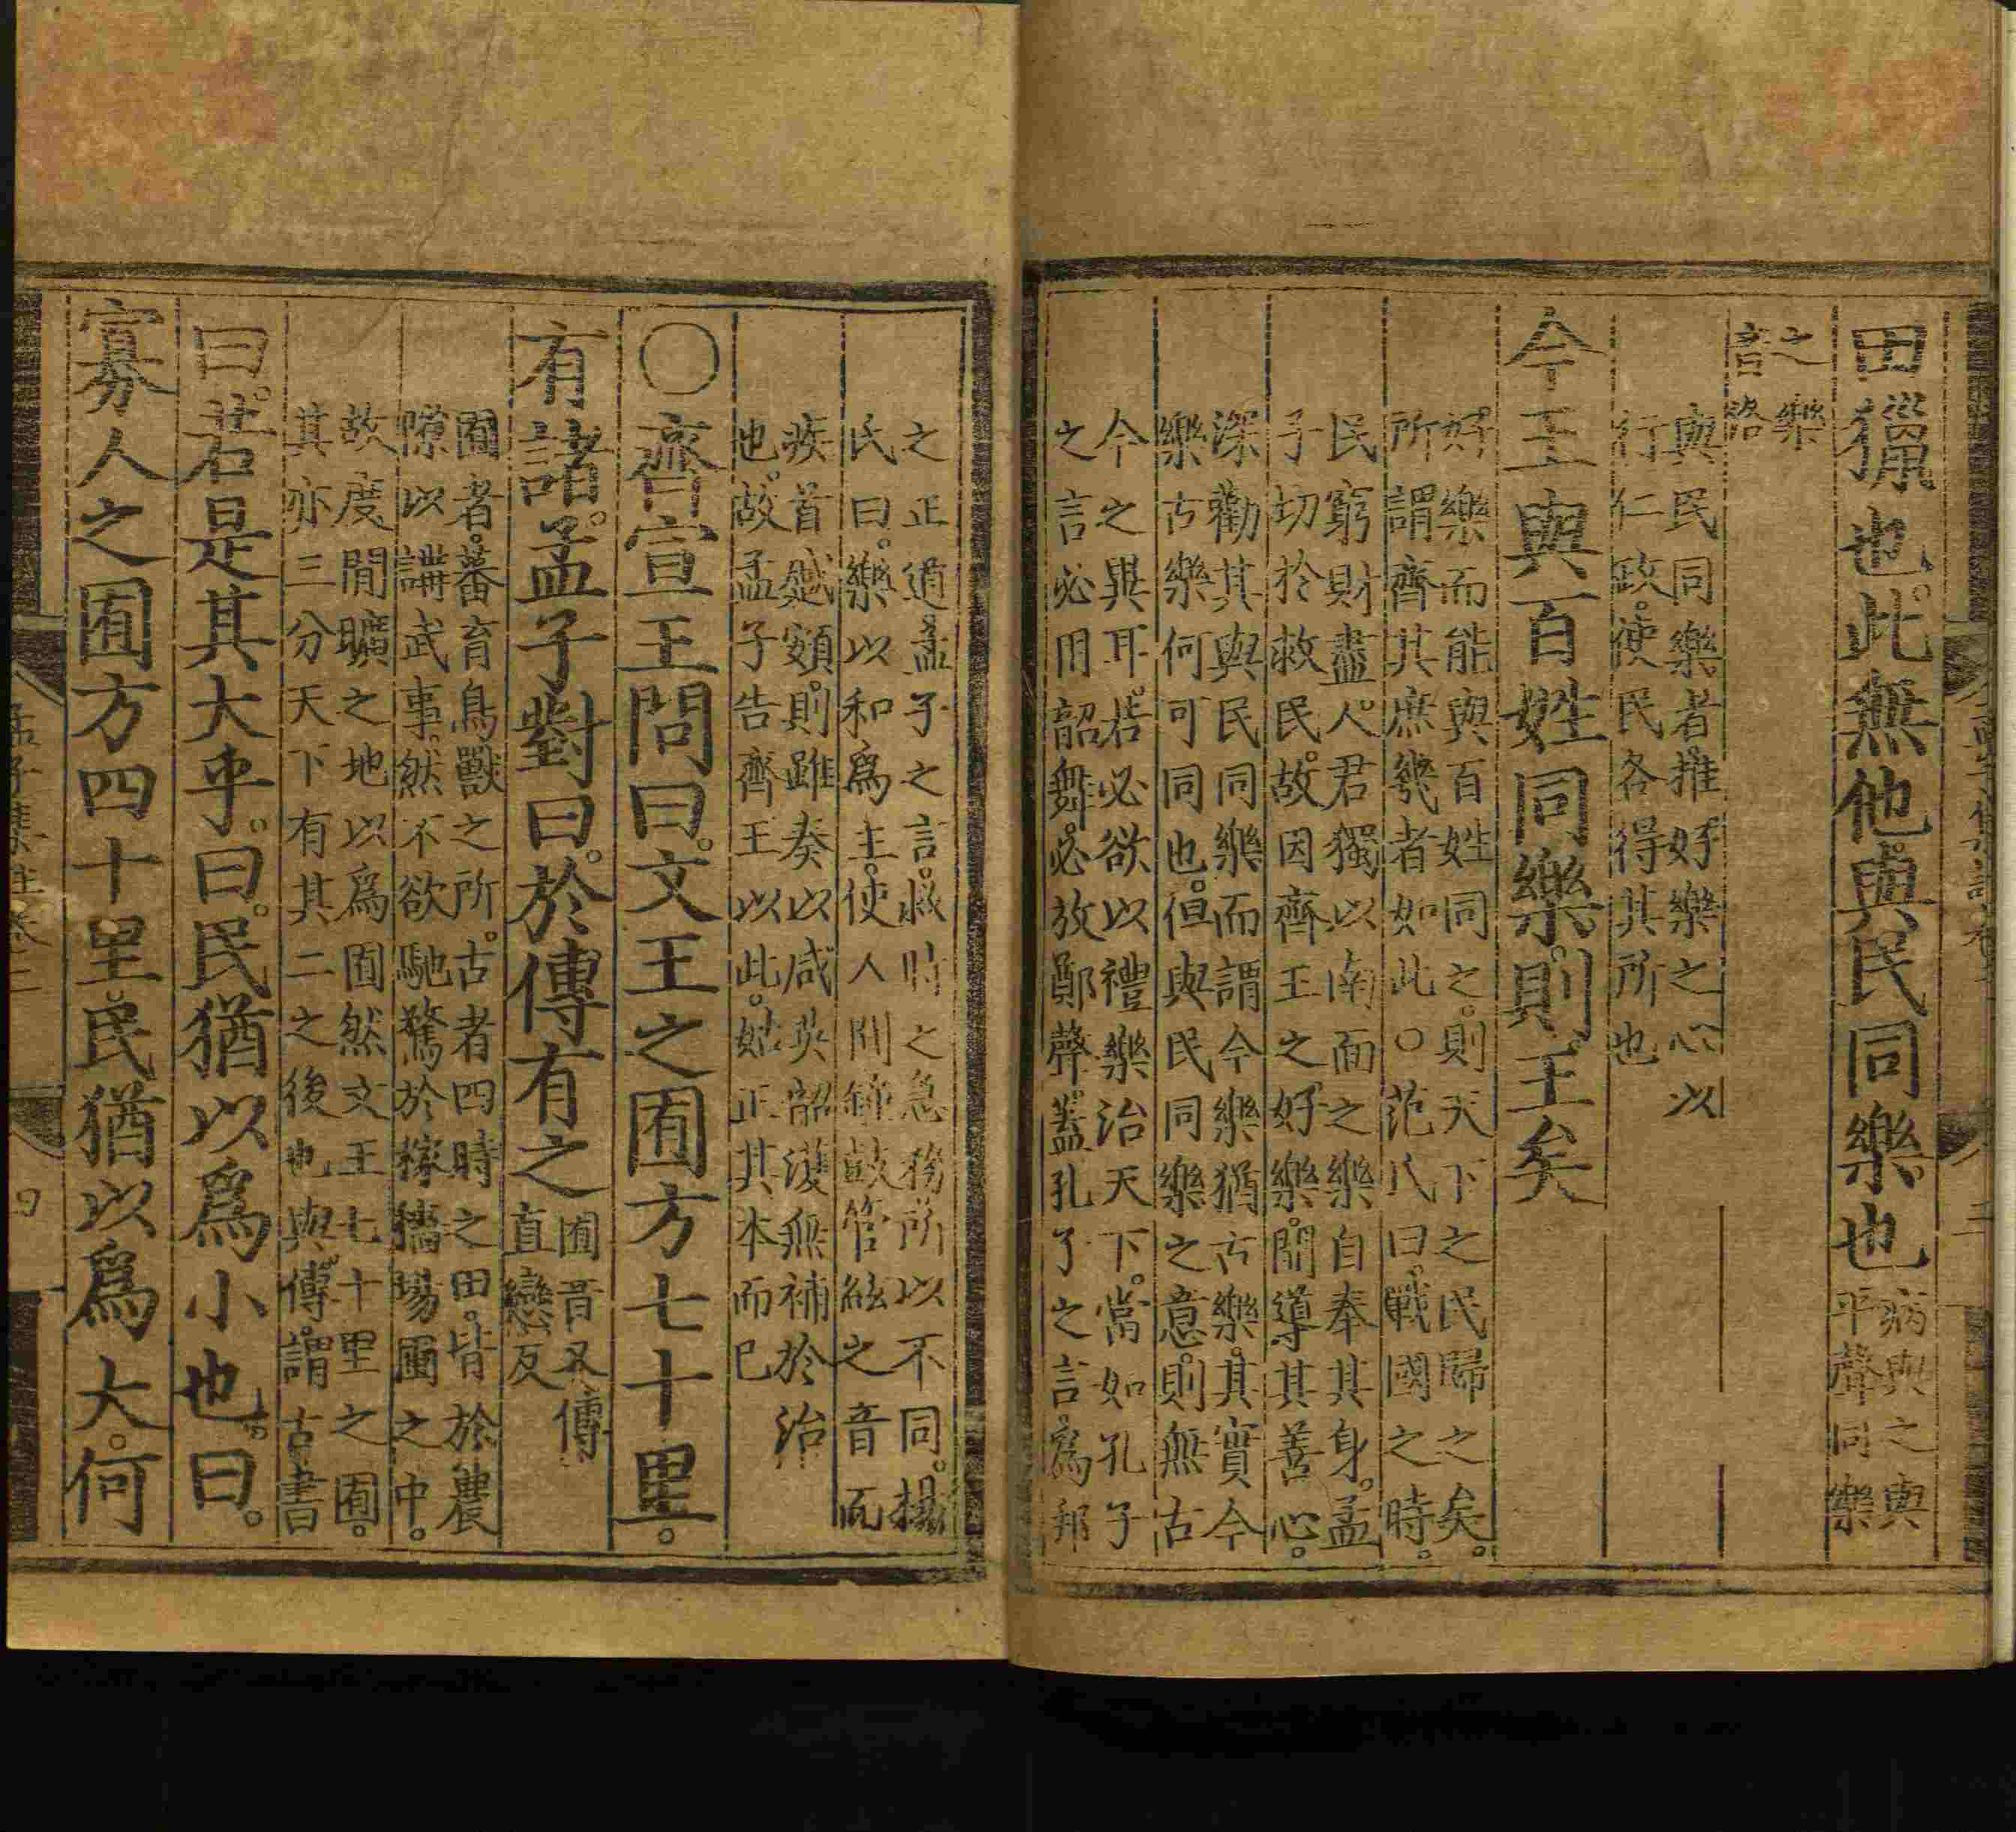 田獵也。此無他。與民同樂也病與之與
平聲同樂
之樂
音洛
與民同樂者。推好樂之心。以
行仁政。使民各得其所也
今王與百姓同樂。則王矣
好樂而能與百姓同之。則天下之民歸之矣。
所謂齊其庶幾者如此〇范氏曰。戰國之時。
民窮財盡。人君獨以南面之樂自奉其身。孟
子切於救民。故因齊王之好樂。開導其善心。
深勸其與民同樂。而謂今樂猶古樂。其實今
樂古樂。何可同也。但與民同樂之意。則無古
今之異耳。若必欲以禮樂治天下。當如孔子
之言。必用韶舞。必放鄭聲。蓋孔子之言。爲邦
之正道。孟子之言。救時之急務。所以不同。楊
氏曰。樂以和爲主。使人聞鐘鼓管絃之音而
疾首蹙頞。則雖奏以咸英韶濩。無補於治
也。故孟子告齊王以此。姑正其本而已
〇齊宣王問曰。文王之囿方七十里。
有諸。孟子對曰。於傳有之囿音又傳
直戀反
囿者。蕃育鳥獸之所。古者四時之田。皆於農
隙以講武事。然不欲馳騖於稼穡場圃之中。
故度閒曠之地以爲囿。然文王七十里之囿。
其亦三分天下有其二之後也與。傳。謂古書
曰。若是其大乎。曰。民猶以爲小也。曰。
寡人之囿方四十里。民猶以爲大。何
孟子集註卷二
四